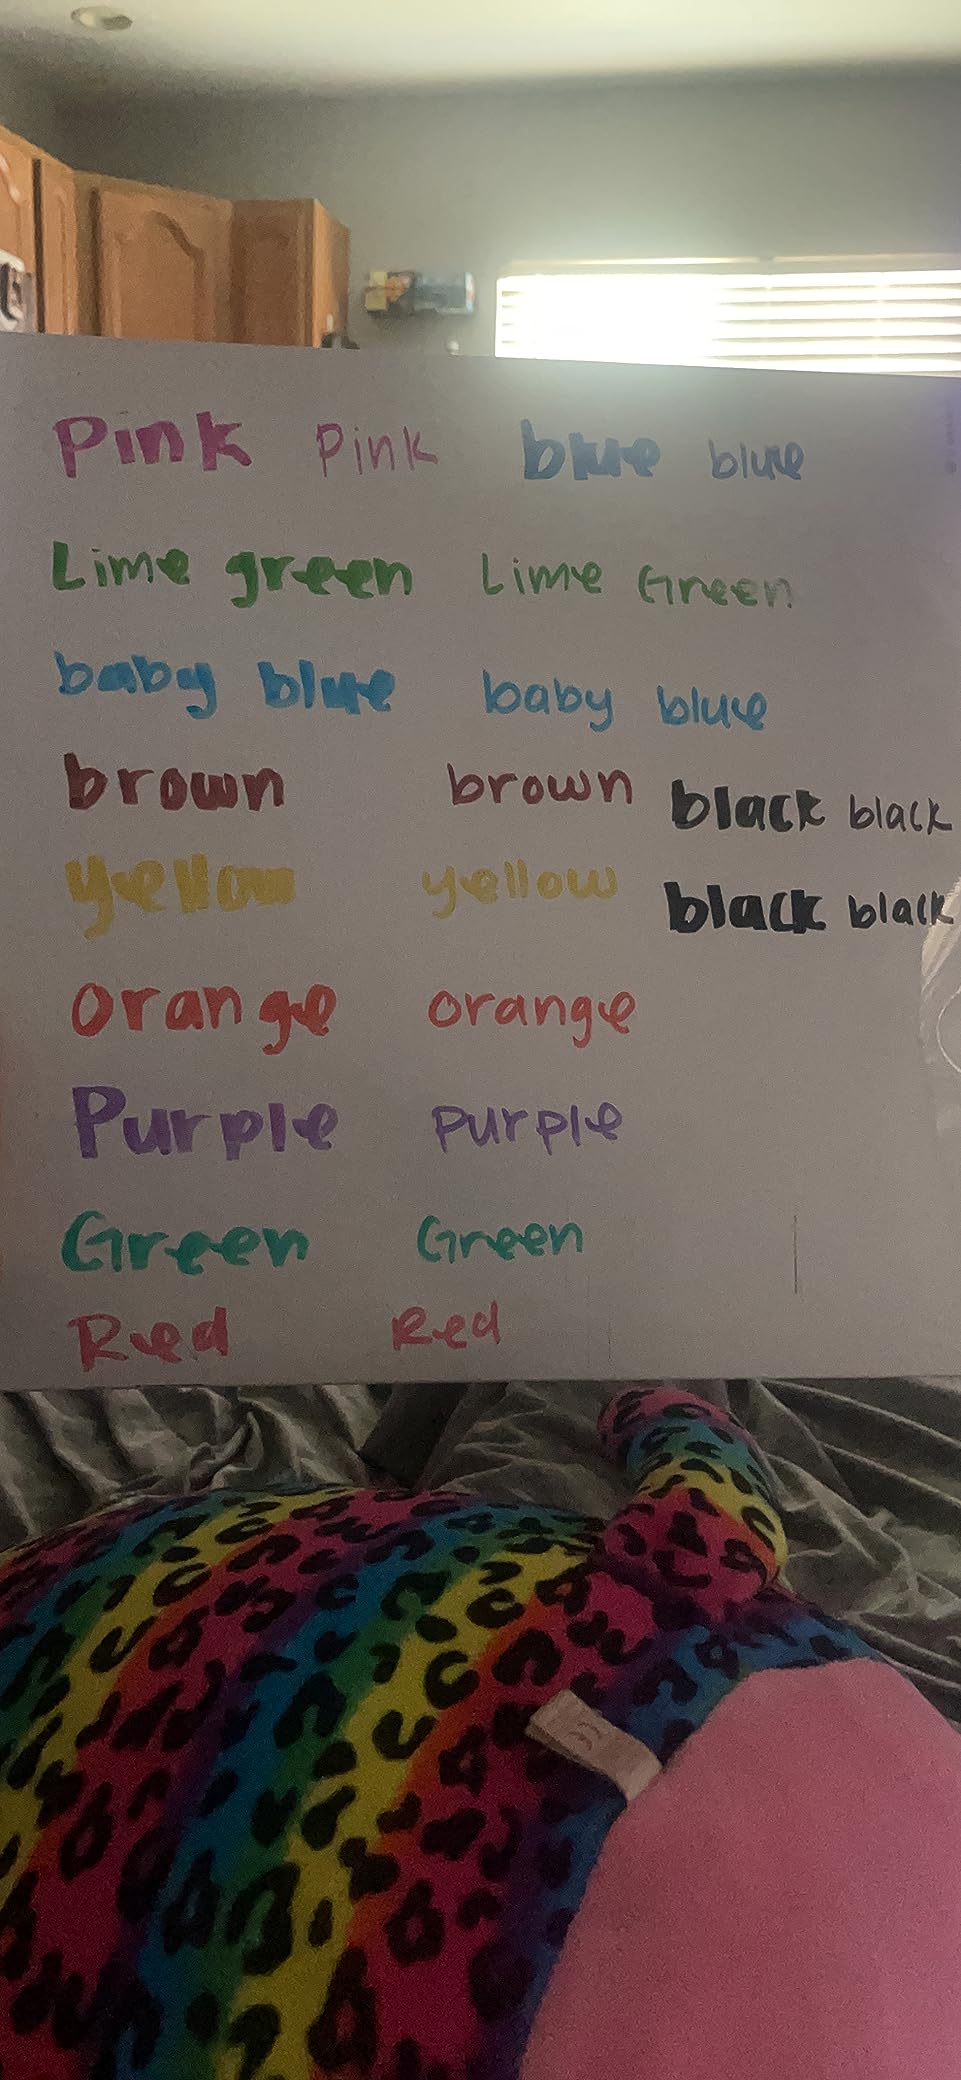 Pink Pink blue blue
Lime green Lime Green
baby blue baby blue
brown brown black black
yellow yellow black black
Orange orange
Purple Purple
Green Green
Red Red